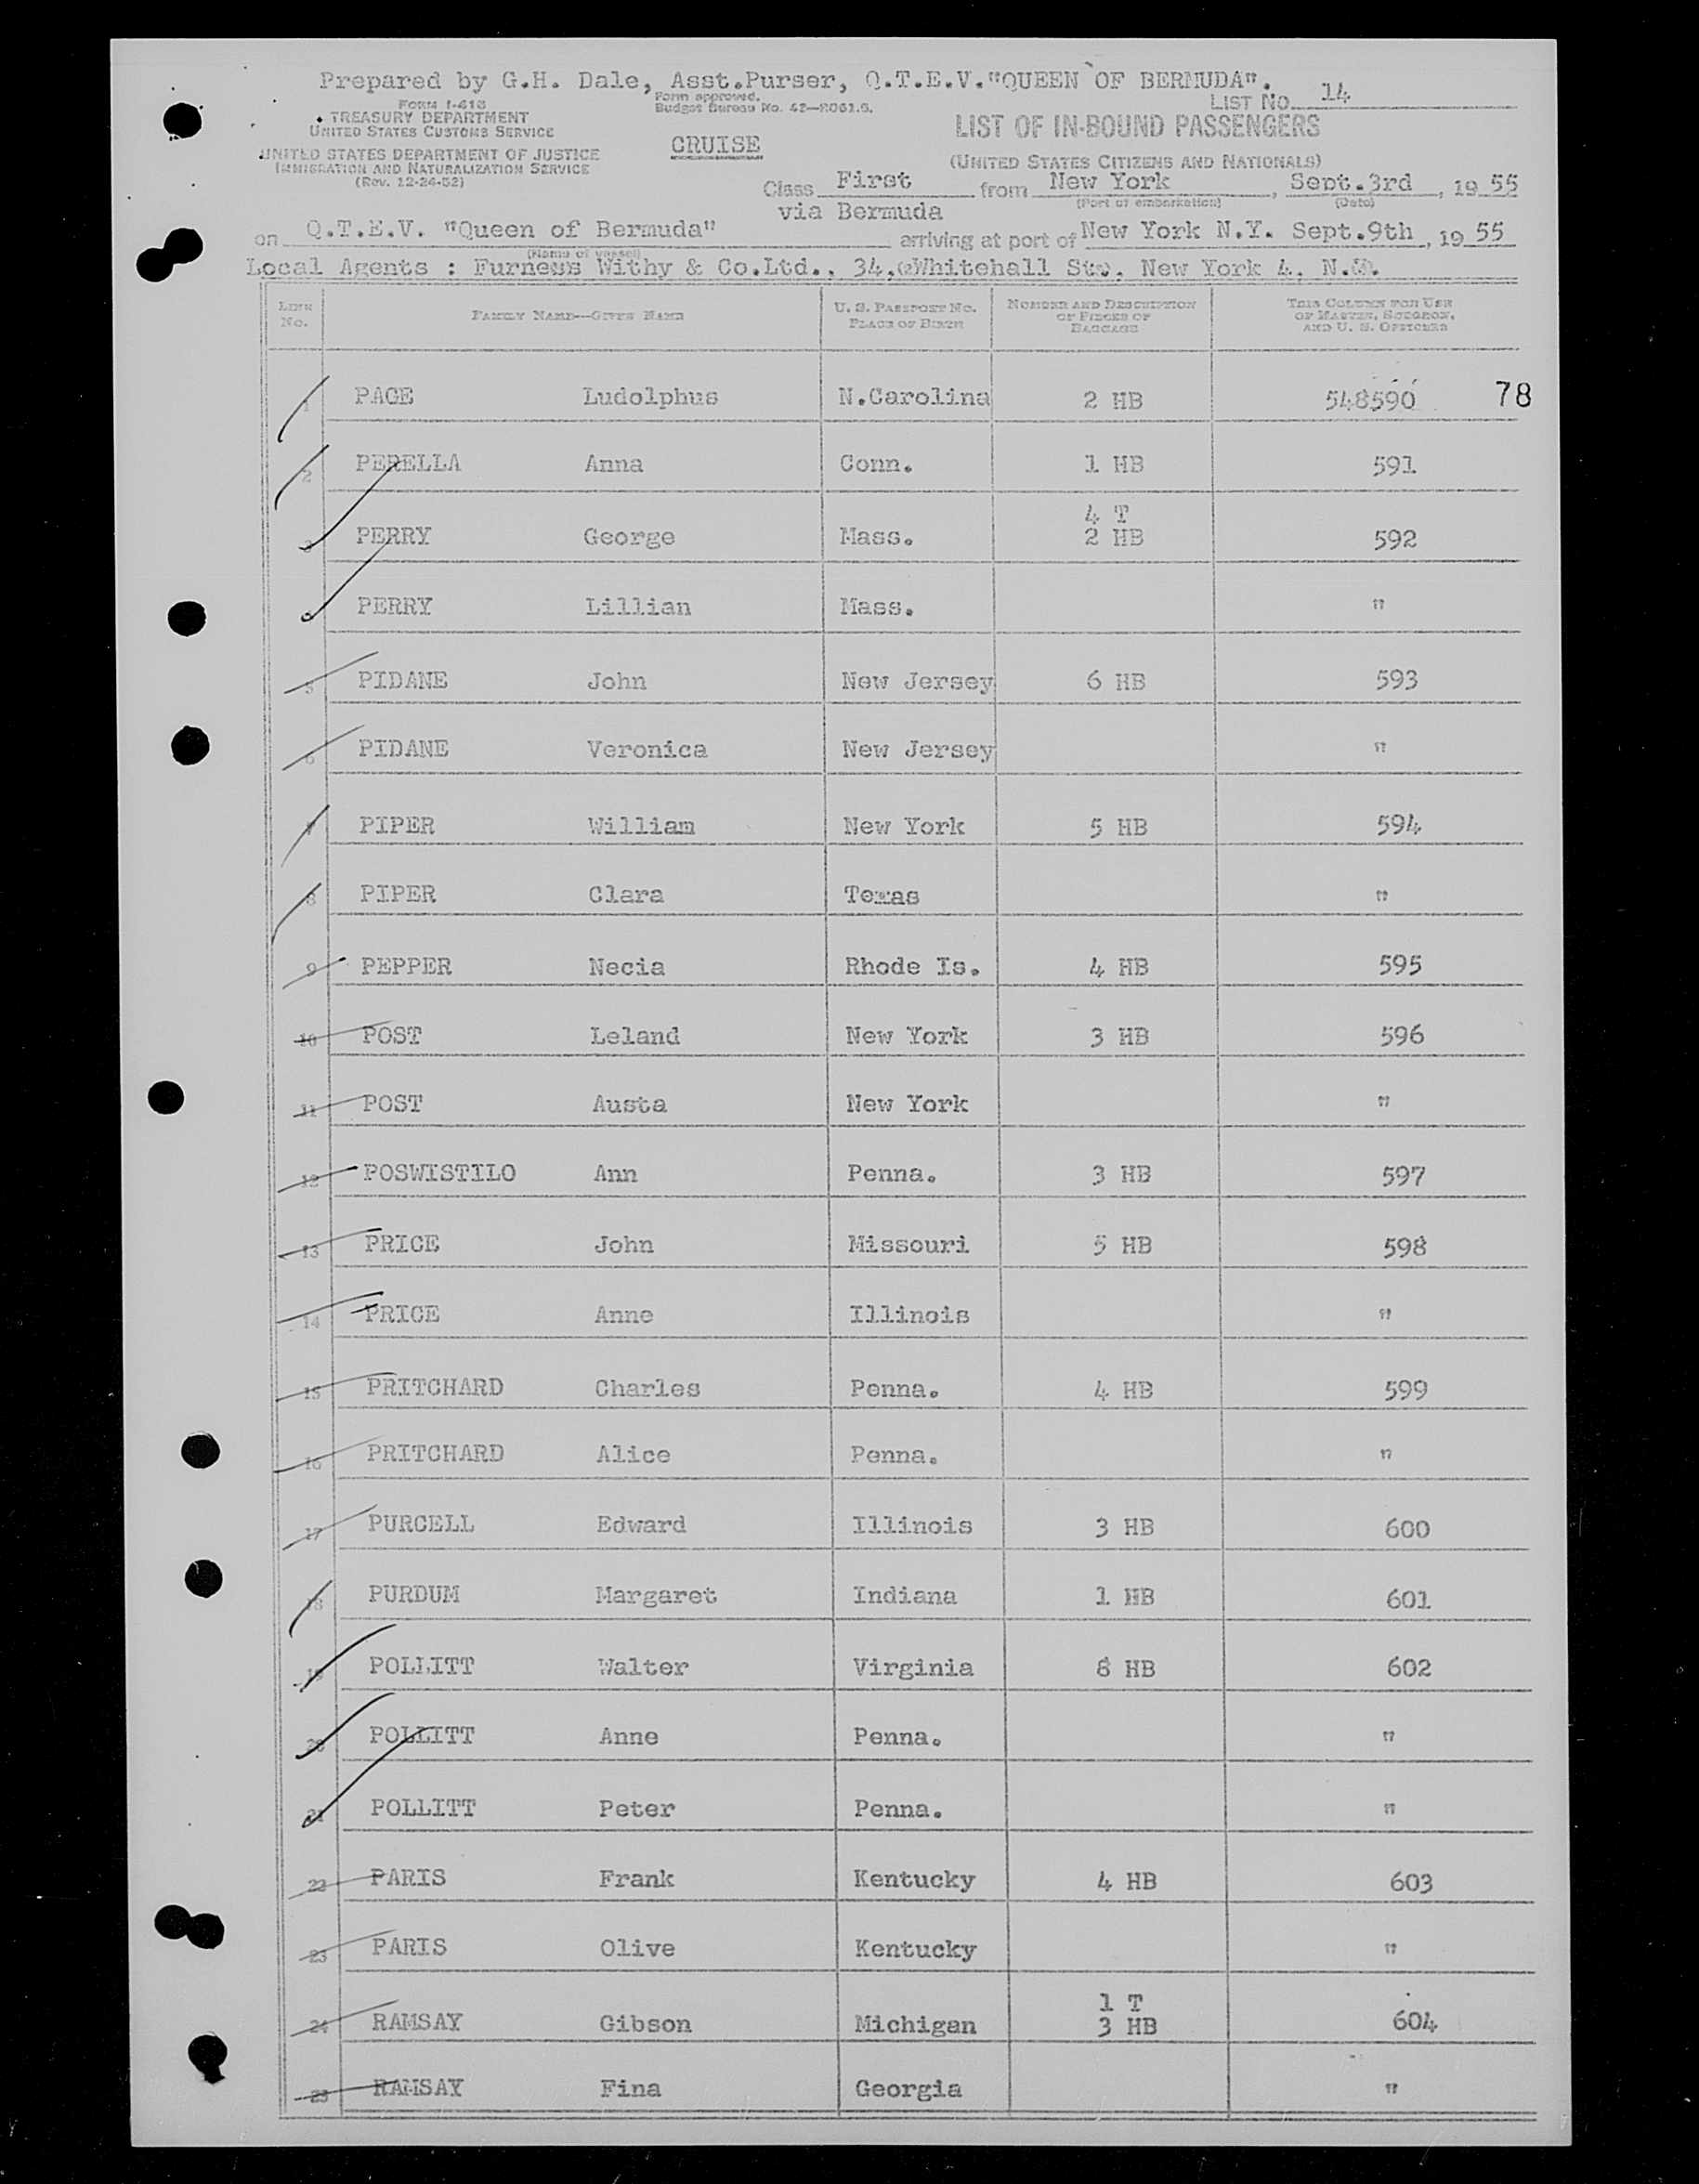 Prepared by G.H. Dale, Asst.Purser, Q.T.E.V."QUEEN OF BERMUDA".
FORM I-418
TREASURY DEPARTMENT
UNITED STATES CUSTOMS SERVICE
UNITED STATES DEPARTMENT OF JUSTICE
IMMIGRATION AND NATURALIZATION SERVICE
(Rev. 12-24-52)
Form approved.
Budget Bureau No. 43—R061.5.
CRUISE
LIST No. 14
LIST OF IN-BOUND PASSENGERS
(UNITED STATES CITIZENS AND NATIONALS)
Class First from New York, Sept.3rd, 19 55
(Port of embarkation) (Date)
via Bermuda
on Q.T.E.V. "Queen of Bermuda" arriving at port of New York N.Y. Sept.9th, 19 55
(Name of vessel)
Local Agents : Furness Withy & Co.Ltd., 34, Whitehall St., New York 4, N.Y.
LINE No. FAMILY NAME—GIVEN NAME U. S. PASSPORT NO. PLACE OF BIRTH NUMBER AND DESCRIPTION OF PIECES OF BAGGAGE THIS COLUMN FOR USE OF MASTER, SURGEON, AND U. S. OFFICERS
1 PAGE Ludolphus N.Carolina 2 HB 548590 78
2 PERELLA Anna Conn. 1 HB 591
4 T
3 PERRY George Mass. 2 HB 592
PERRY Lillian Mass. "
5 PIDANE John New Jersey 6 HB 593
6 PIDANE Veronica New Jersey "
7 PIPER William New York 5 HB 594
8 PIPER Clara Texas "
9 PEPPER Necia Rhode Is. 4 HB 595
10 POST Leland New York 3 HB 596
11 POST Austa New York "
12 POSWISTILO Ann Penna. 3 HB 597
13 PRICE John Missouri 5 HB 598
14 PRICE Anne Illinois "
15 PRITCHARD Charles Penna. 4 HB 599
16 PRITCHARD Alice Penna. "
17 PURCELL Edward Illinois 3 HB 600
18 PURDUM Margaret Indiana 1 HB 601
19 POLLITT Walter Virginia 8 HB 602
20 POLLITT Anne Penna. "
21 POLLITT Peter Penna. "
22 PARIS Frank Kentucky 4 HB 603
23 PARIS Olive Kentucky "
1 T
24 RAMSAY Gibson Michigan 3 HB 604
25 RAMSAY Fina Georgia "